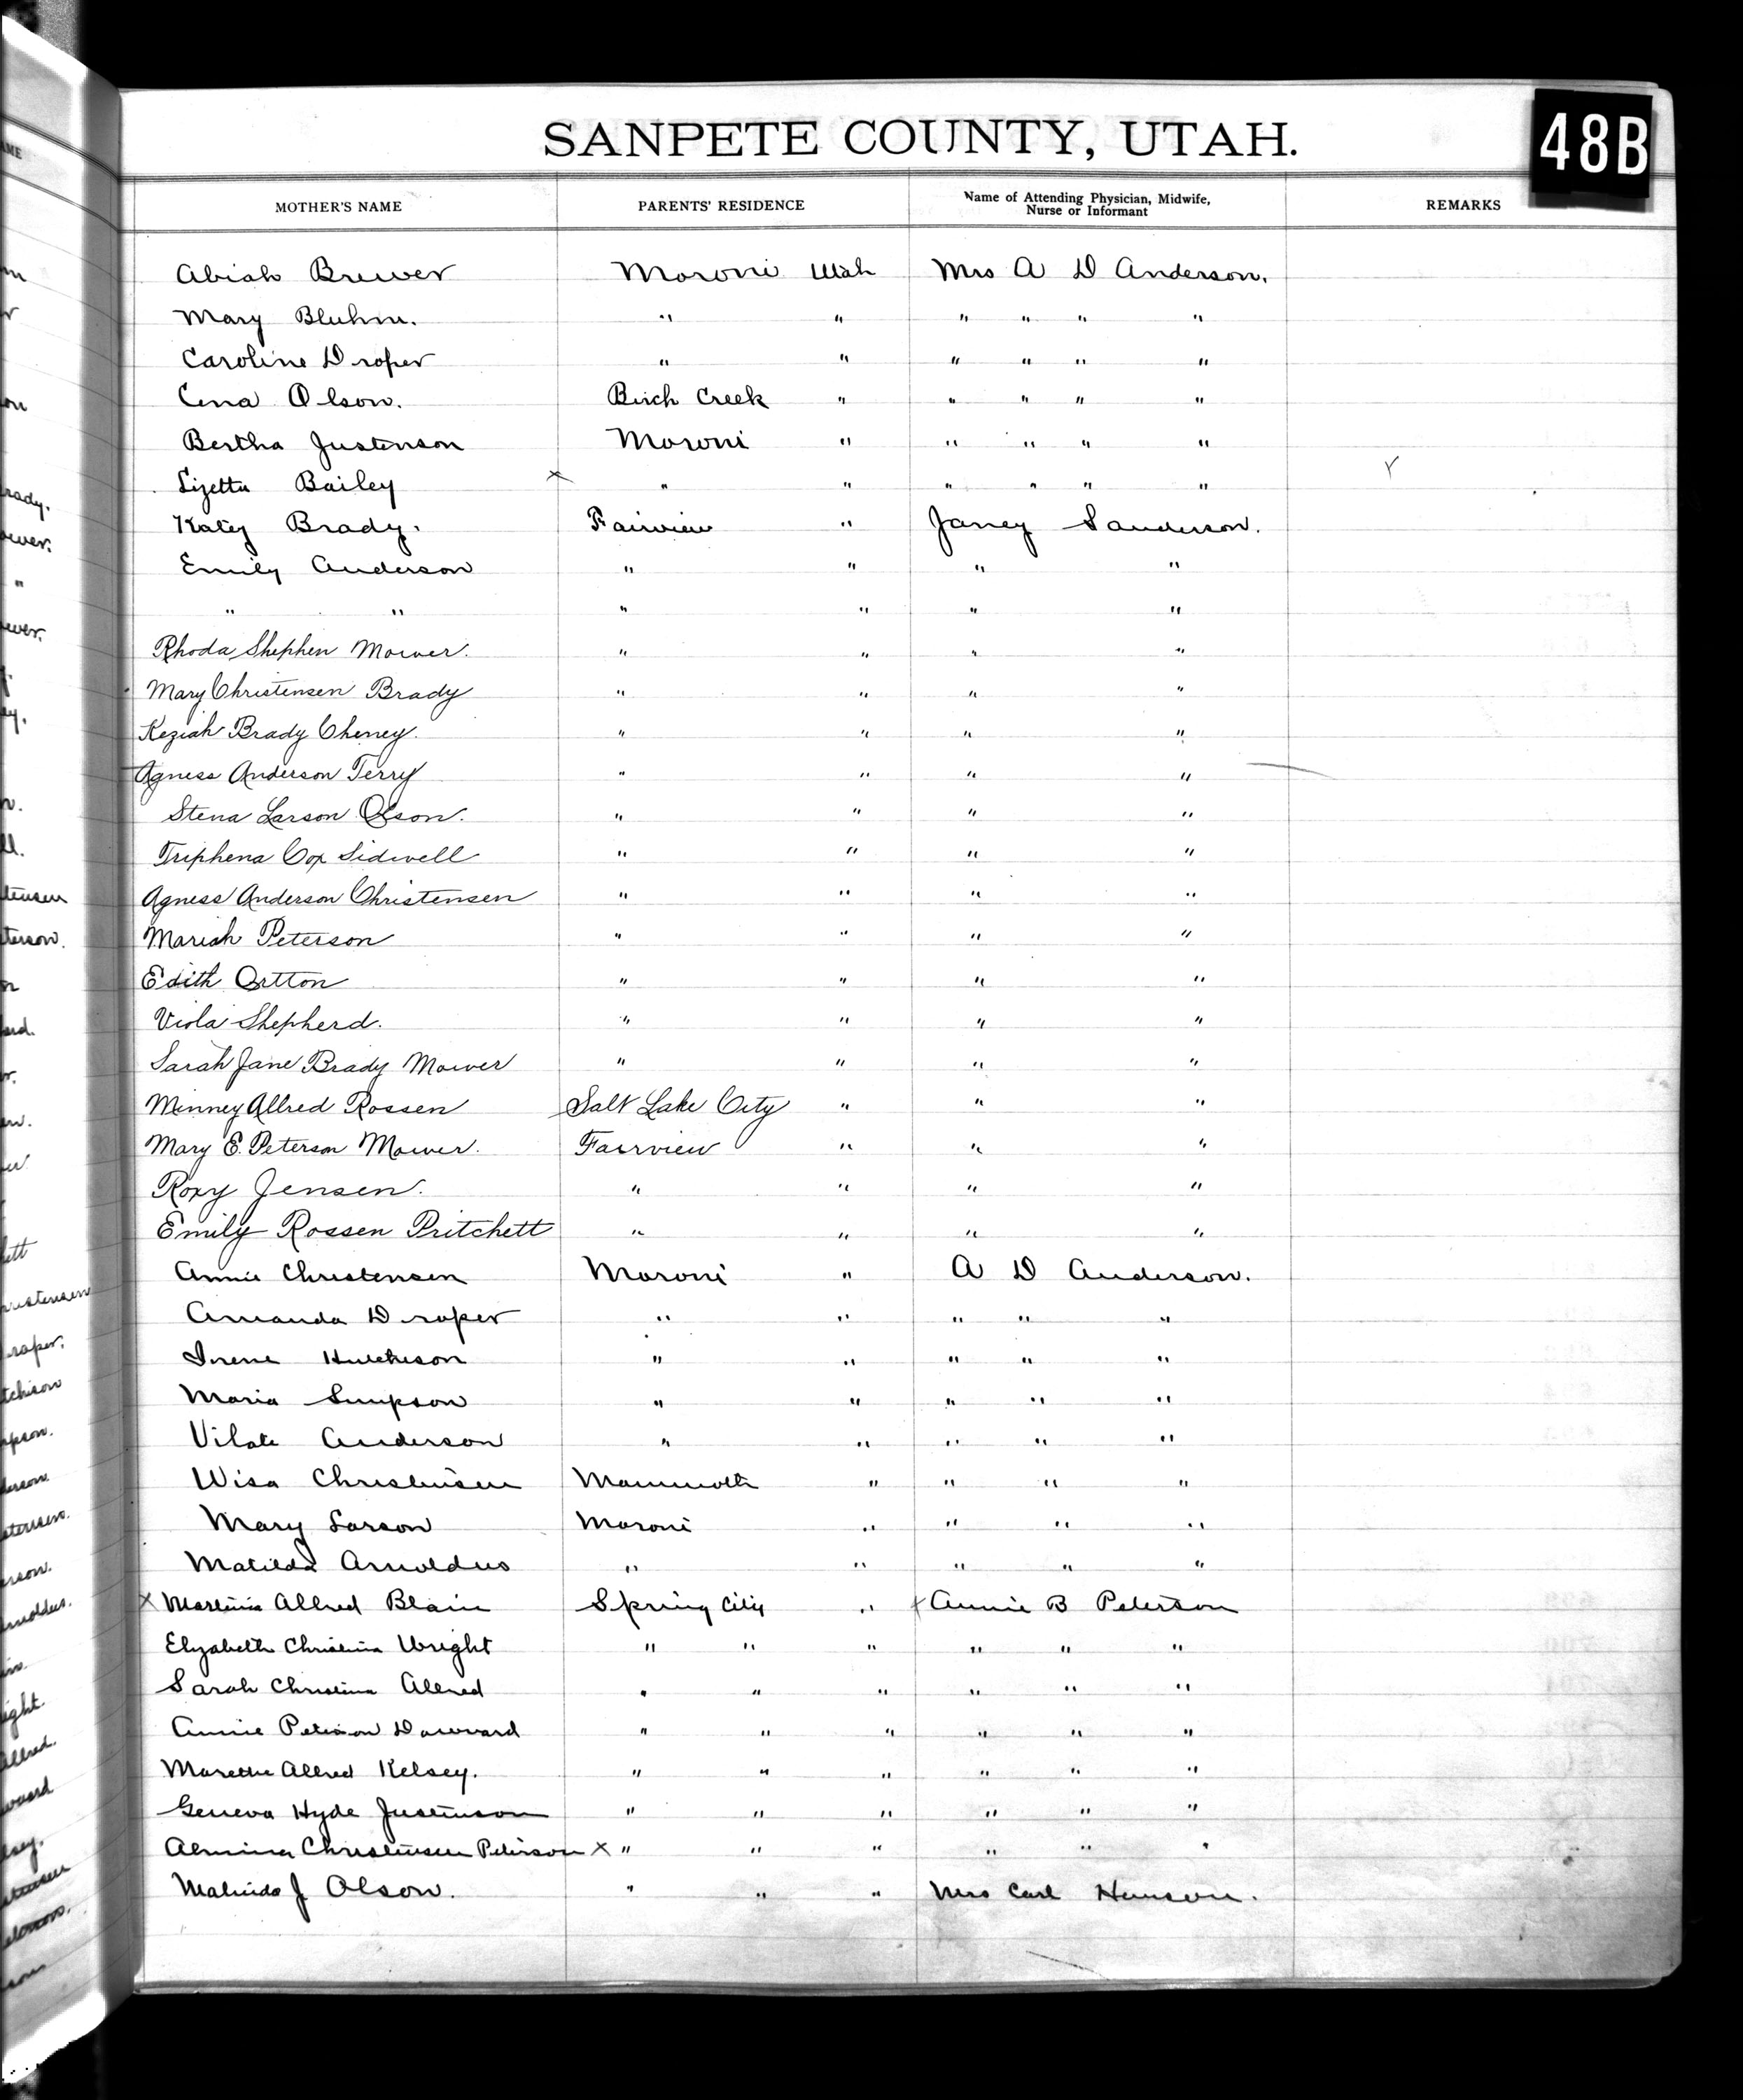 SANPETE COUNTY, UTAH.
48B
MOTHER'S NAME PARENTS' RESIDENCE Name of Attending Physician, Midwife, Nurse or Informant REMARKS
Abiah Brewer Moroni Utah Mrs A D Anderson.
Mary Bluhm. " " " " " "
Caroline Draper " " " " " "
Cena Olson. Birch Creek " " " " "
Bertha Justenson Moroni " " " " "
Lizetta Bailey x " " " " " "
Katey Brady. Fairview " Janey Sanderson.
Emily Anderson " " " "
" " " " " "
Rhoda Shephen Mower. " " " "
Mary Christensen Brady " " " "
Keziah Brady Cheney. " " " "
Agness Anderson Terry " " " "
Stena Larson Olson. " " " "
Triphena Cox Sidwell " " " "
Agness Anderson Christensen " " " "
Mariah Peterson " " " "
Edith Ortton " " " "
Viola Shepherd. " " " "
Sarah Jane Brady Mower " " " "
Minney Allred Rossen Salt Lake City " " "
Mary E. Peterson Mower. Fairview " " "
Roxy Jensen. " " " "
Emily Rossen Pritchett " " " "
Annie Christensen Moroni " A D Anderson.
Amanda Draper " " " " "
Irene Hutchison " " " " "
Maria Simpson " " " " "
Vilate Anderson " " " " "
Wisa Christensen Mammoth " " " "
Mary Larson Moroni " " " "
Matilda Arnoldus " " " " "
x Allred Blain Spring City " x Annie B Peterson
Elizabeth Christina Wright " " " " " "
Sarah Christina Allred " " " " " "
Annie Peterson " " " " " "
Allred Kelsey. " " " " " "
Geneva Hyde Justenson " " " " " "
Almina Christensen Peterson x " " " " " "
Malinda J Olson. " " " Mrs Carl Hansen.